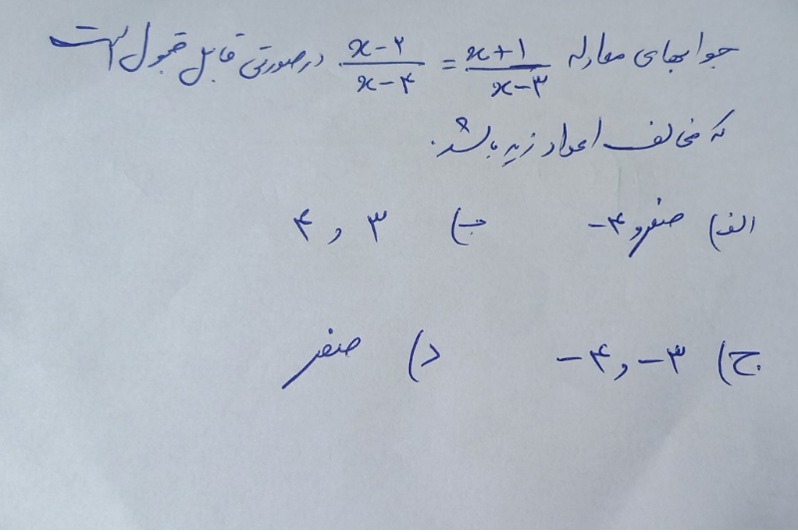 جوابهای معادله x+1/x-۳ = x-۲/x-۴ در صورتی قابل قبول است
که مخالف اعداد زیر باشد.
الف) صفر و ۴- ب) ۳ و ۴
ج) ۳- و ۴- د) صفر